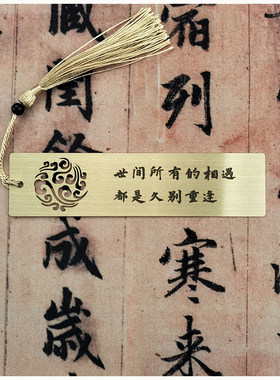 世间所有的相遇
都是久别重逢
宿列
寒来
藏閏餘成歲